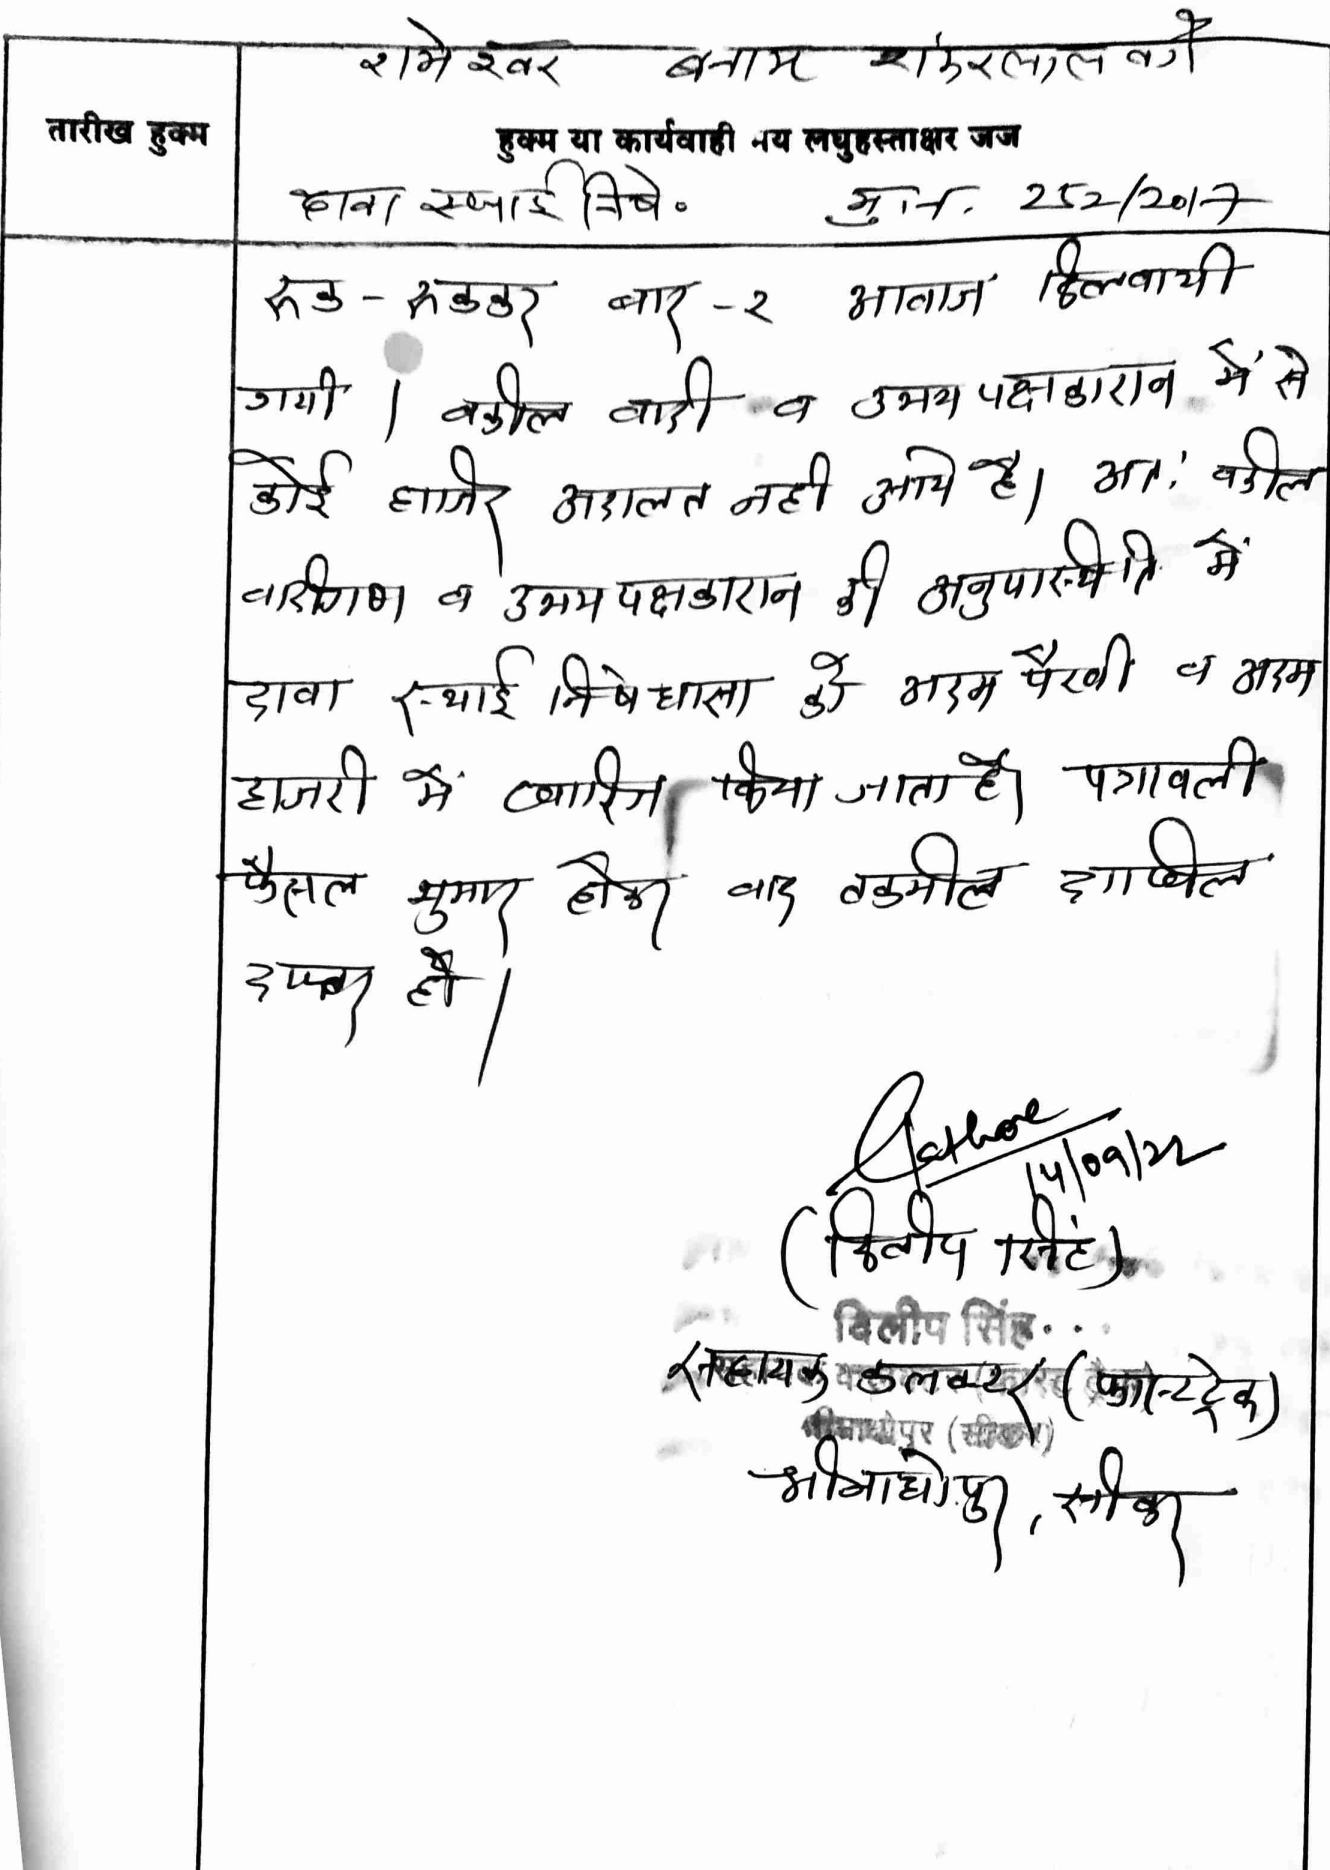 रामेश्वर बनाम शंकरलाल वगै
तारीख हुक्म
हुक्म या कार्यवाही मय लघुहस्ताक्षर जज
दावा स्थाई निषे० मु.न. 252/2017
रूक - रूककर बार -२ आवाज दिलवायी
गयी । वकील वादी व उभय पक्षकारान में से
कोई हाजिर अदालत नही आये है। अतः वकील
वादीगण व उभय पक्षकारान की अनुपास्थिति में
दावा स्थाई निषेधाज्ञा को अदम पैरवी व अदम
हाजरी में खारिज किया जाता है। पत्रावली
फैसल शुमार होकर बाद तकमील दाखिल
दफ्तर हो ।
14/09/22
(दिलीप सिंह)
दिलीप सिंह
सहायक कलक्टर (फास्टट्रेक)
श्रीमाधोपुर (सीकर)
श्रीमाधोपुर, सीकर